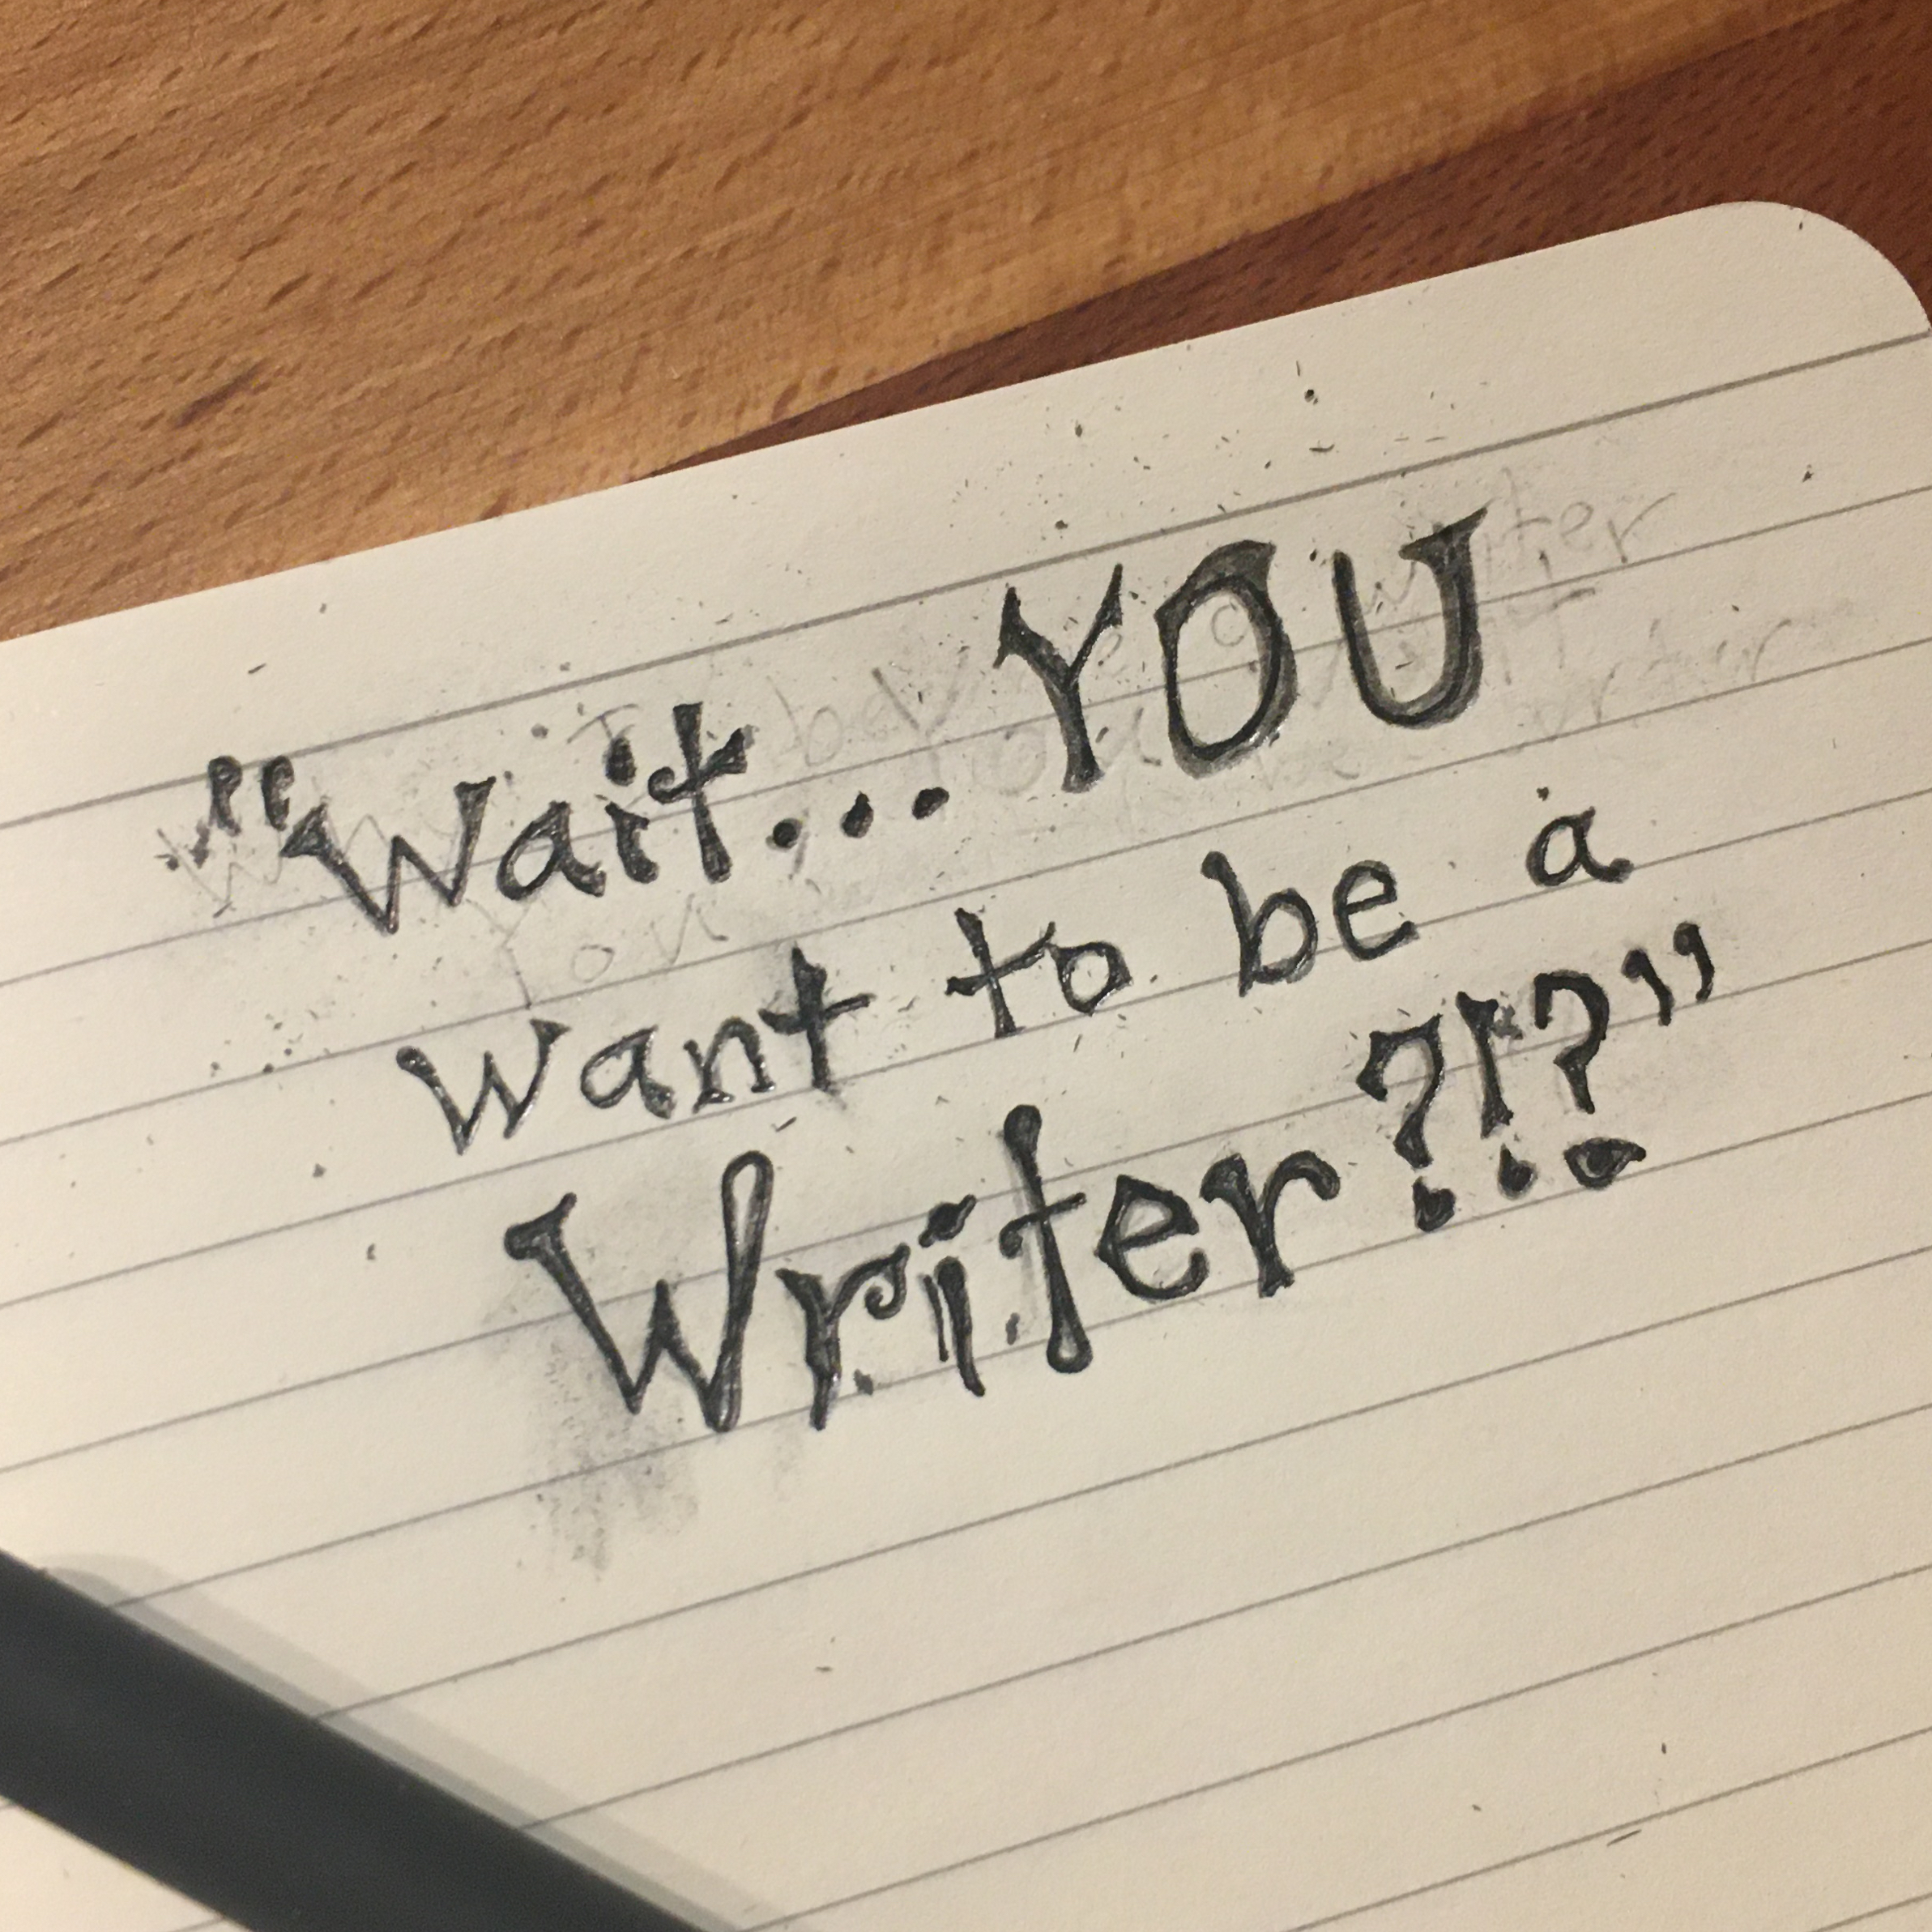 "Wait... YOU
want to be a
Writer?!?"